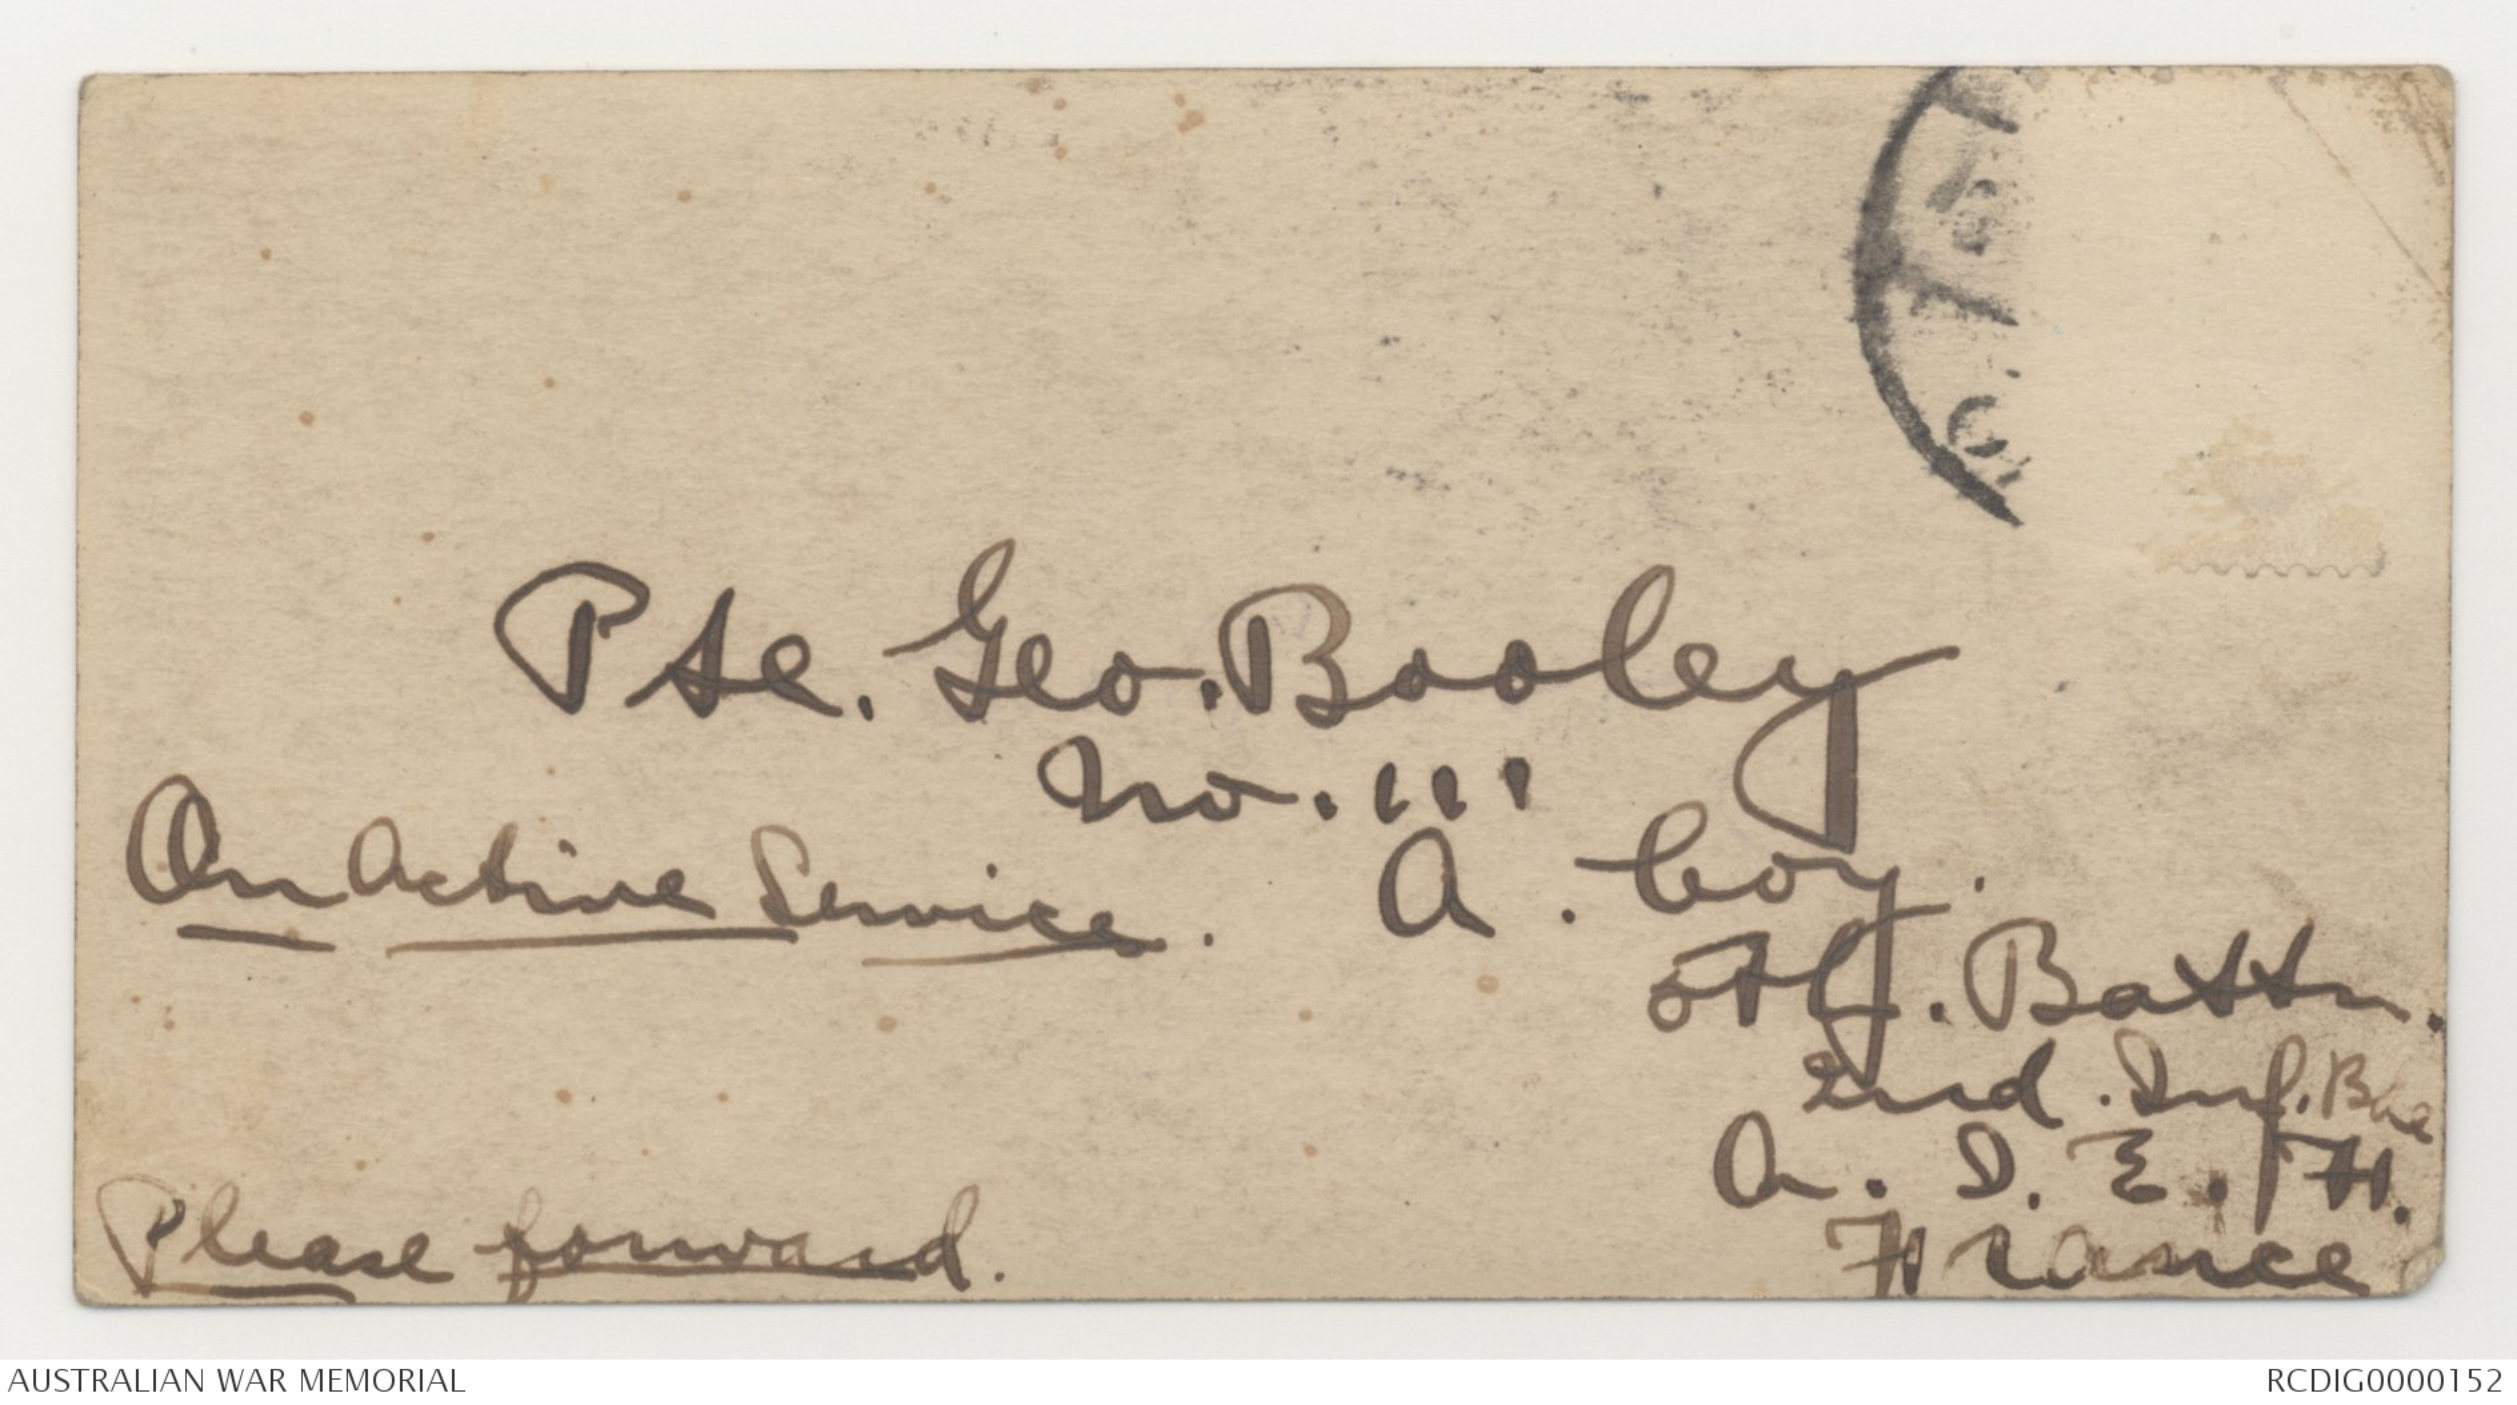 Pte. Geo. Booley
No. 111
On Active Service.
A. Coy.
8th. Battn.
2nd. Inf. Bde
A. I. E. F.
France
Please forward.
AUSTRALIAN WAR MEMORIAL
RCDIG0000152